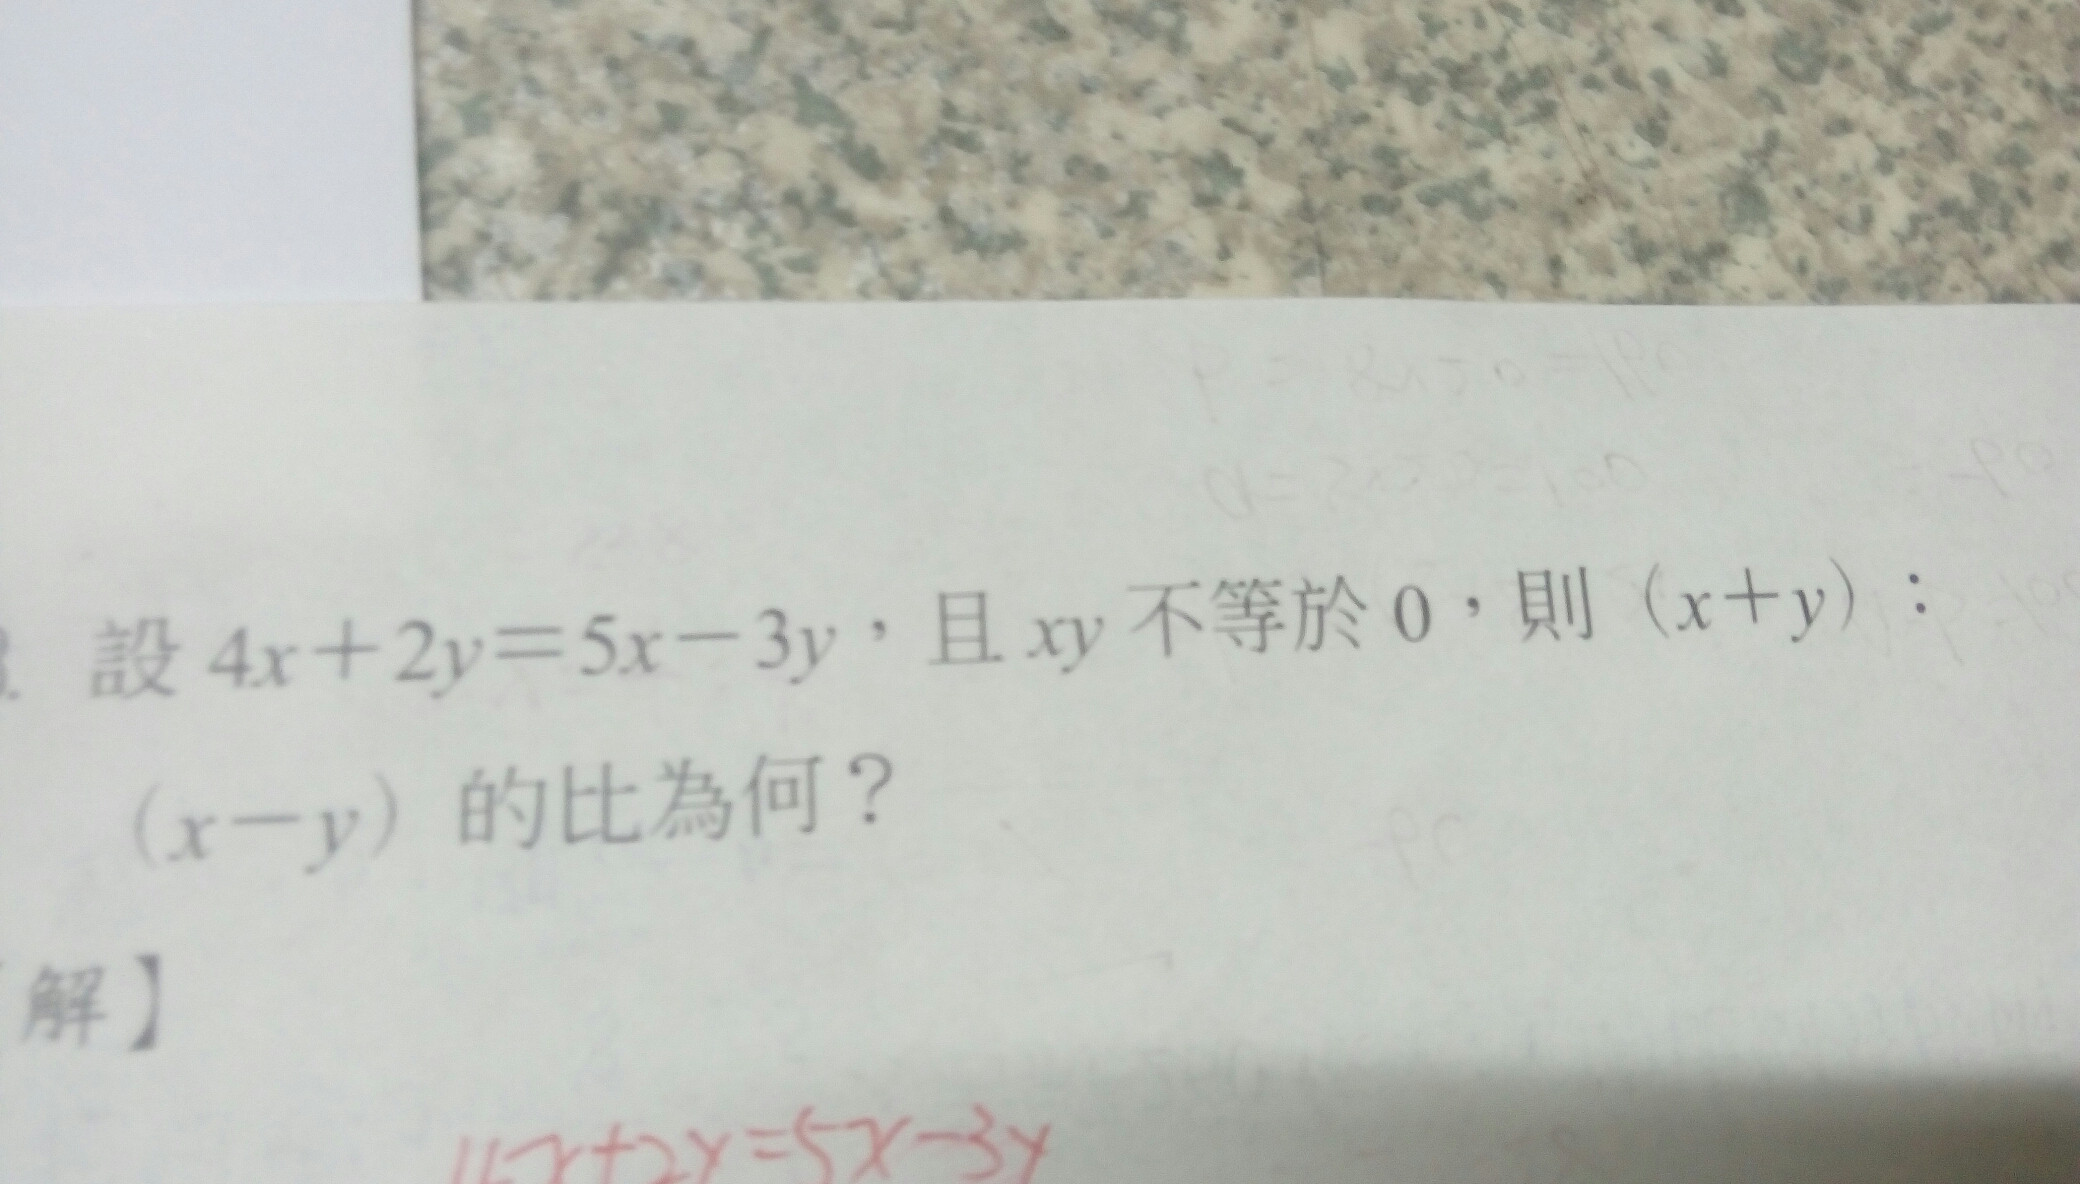 設 4x＋2y＝5x－3y，且 xy 不等於 0，則（x＋y）：
（x－y）的比為何？
解】
4x+2y=5x-3y